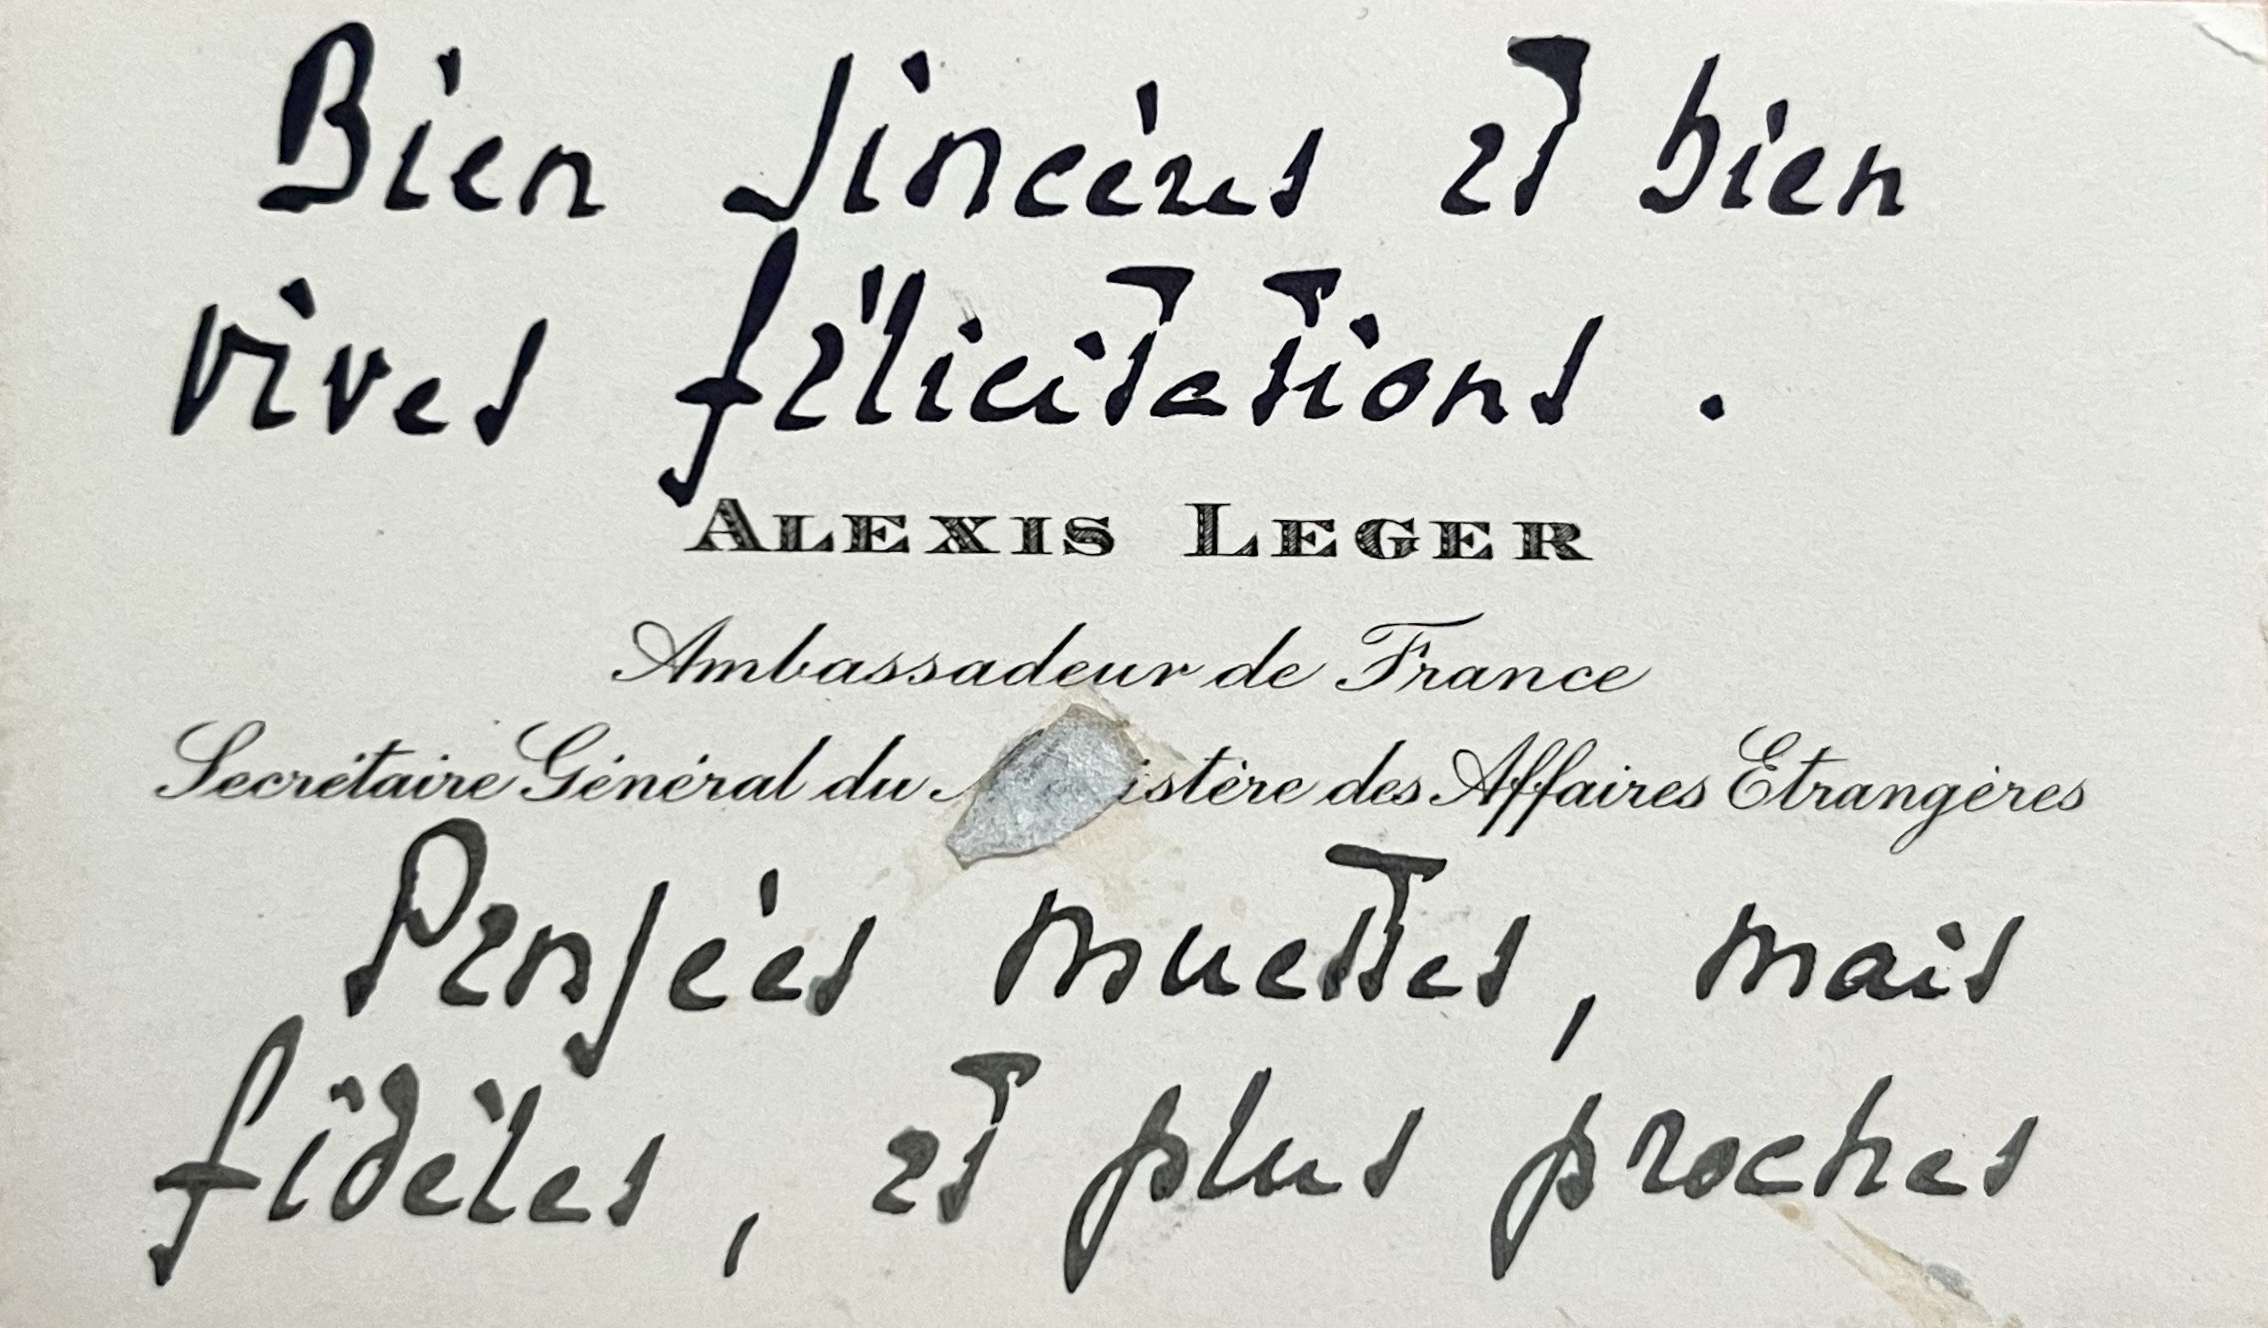 Bien sincères et bien
vives félicitations.
ALEXIS LEGER
Ambassadeur de France
Secrétaire Général du des Affaires Etrangères
Pensées muettes, mais
fidèles, et plus proches